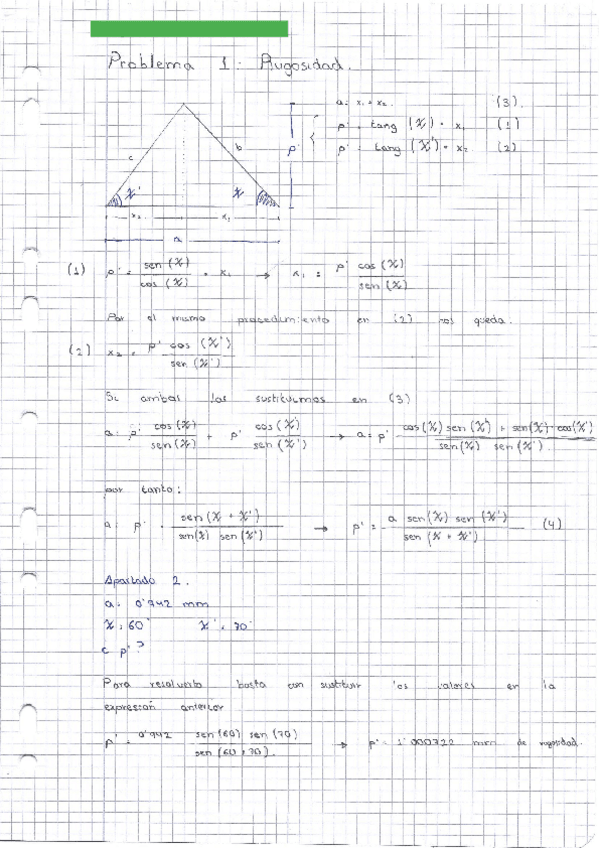 Problema 1: Rugosidad.
a = x₁ + x₂. (3).
p' = tang (χ) · x₁ (1)
p' = tang (χ') · x₂ (2)
p'
c
b
χ'
χ
x₂
x₁
a
(1) p' = sen (χ) / cos (χ) · x₁ → x₁ = p' cos (χ) / sen (χ)
Por el mismo procedimiento en (2) nos queda:
(2) x₂ = p' cos (χ') / sen (χ')
Si ambas las sustituimos en (3)
a = p' cos (χ) / sen (χ) + p' cos (χ') / sen (χ') → a = p' cos (χ) sen (χ') + sen (χ) · cos (χ') / sen (χ) sen (χ').
por tanto:
a = p' · sen (χ + χ') / sen (χ) sen (χ') → p' = a sen (χ) sen (χ') / sen (χ + χ') (4)
Apartado 2.
a = 0'942 mm
χ = 60° χ' = 70°
¿ p' ?
Para resolverlo basta con sustituir los valores en la
expresión anterior
p' = 0'942 sen (60) sen (70) / sen (60 + 70). → p' = 1'000722 mm de rugosidad.